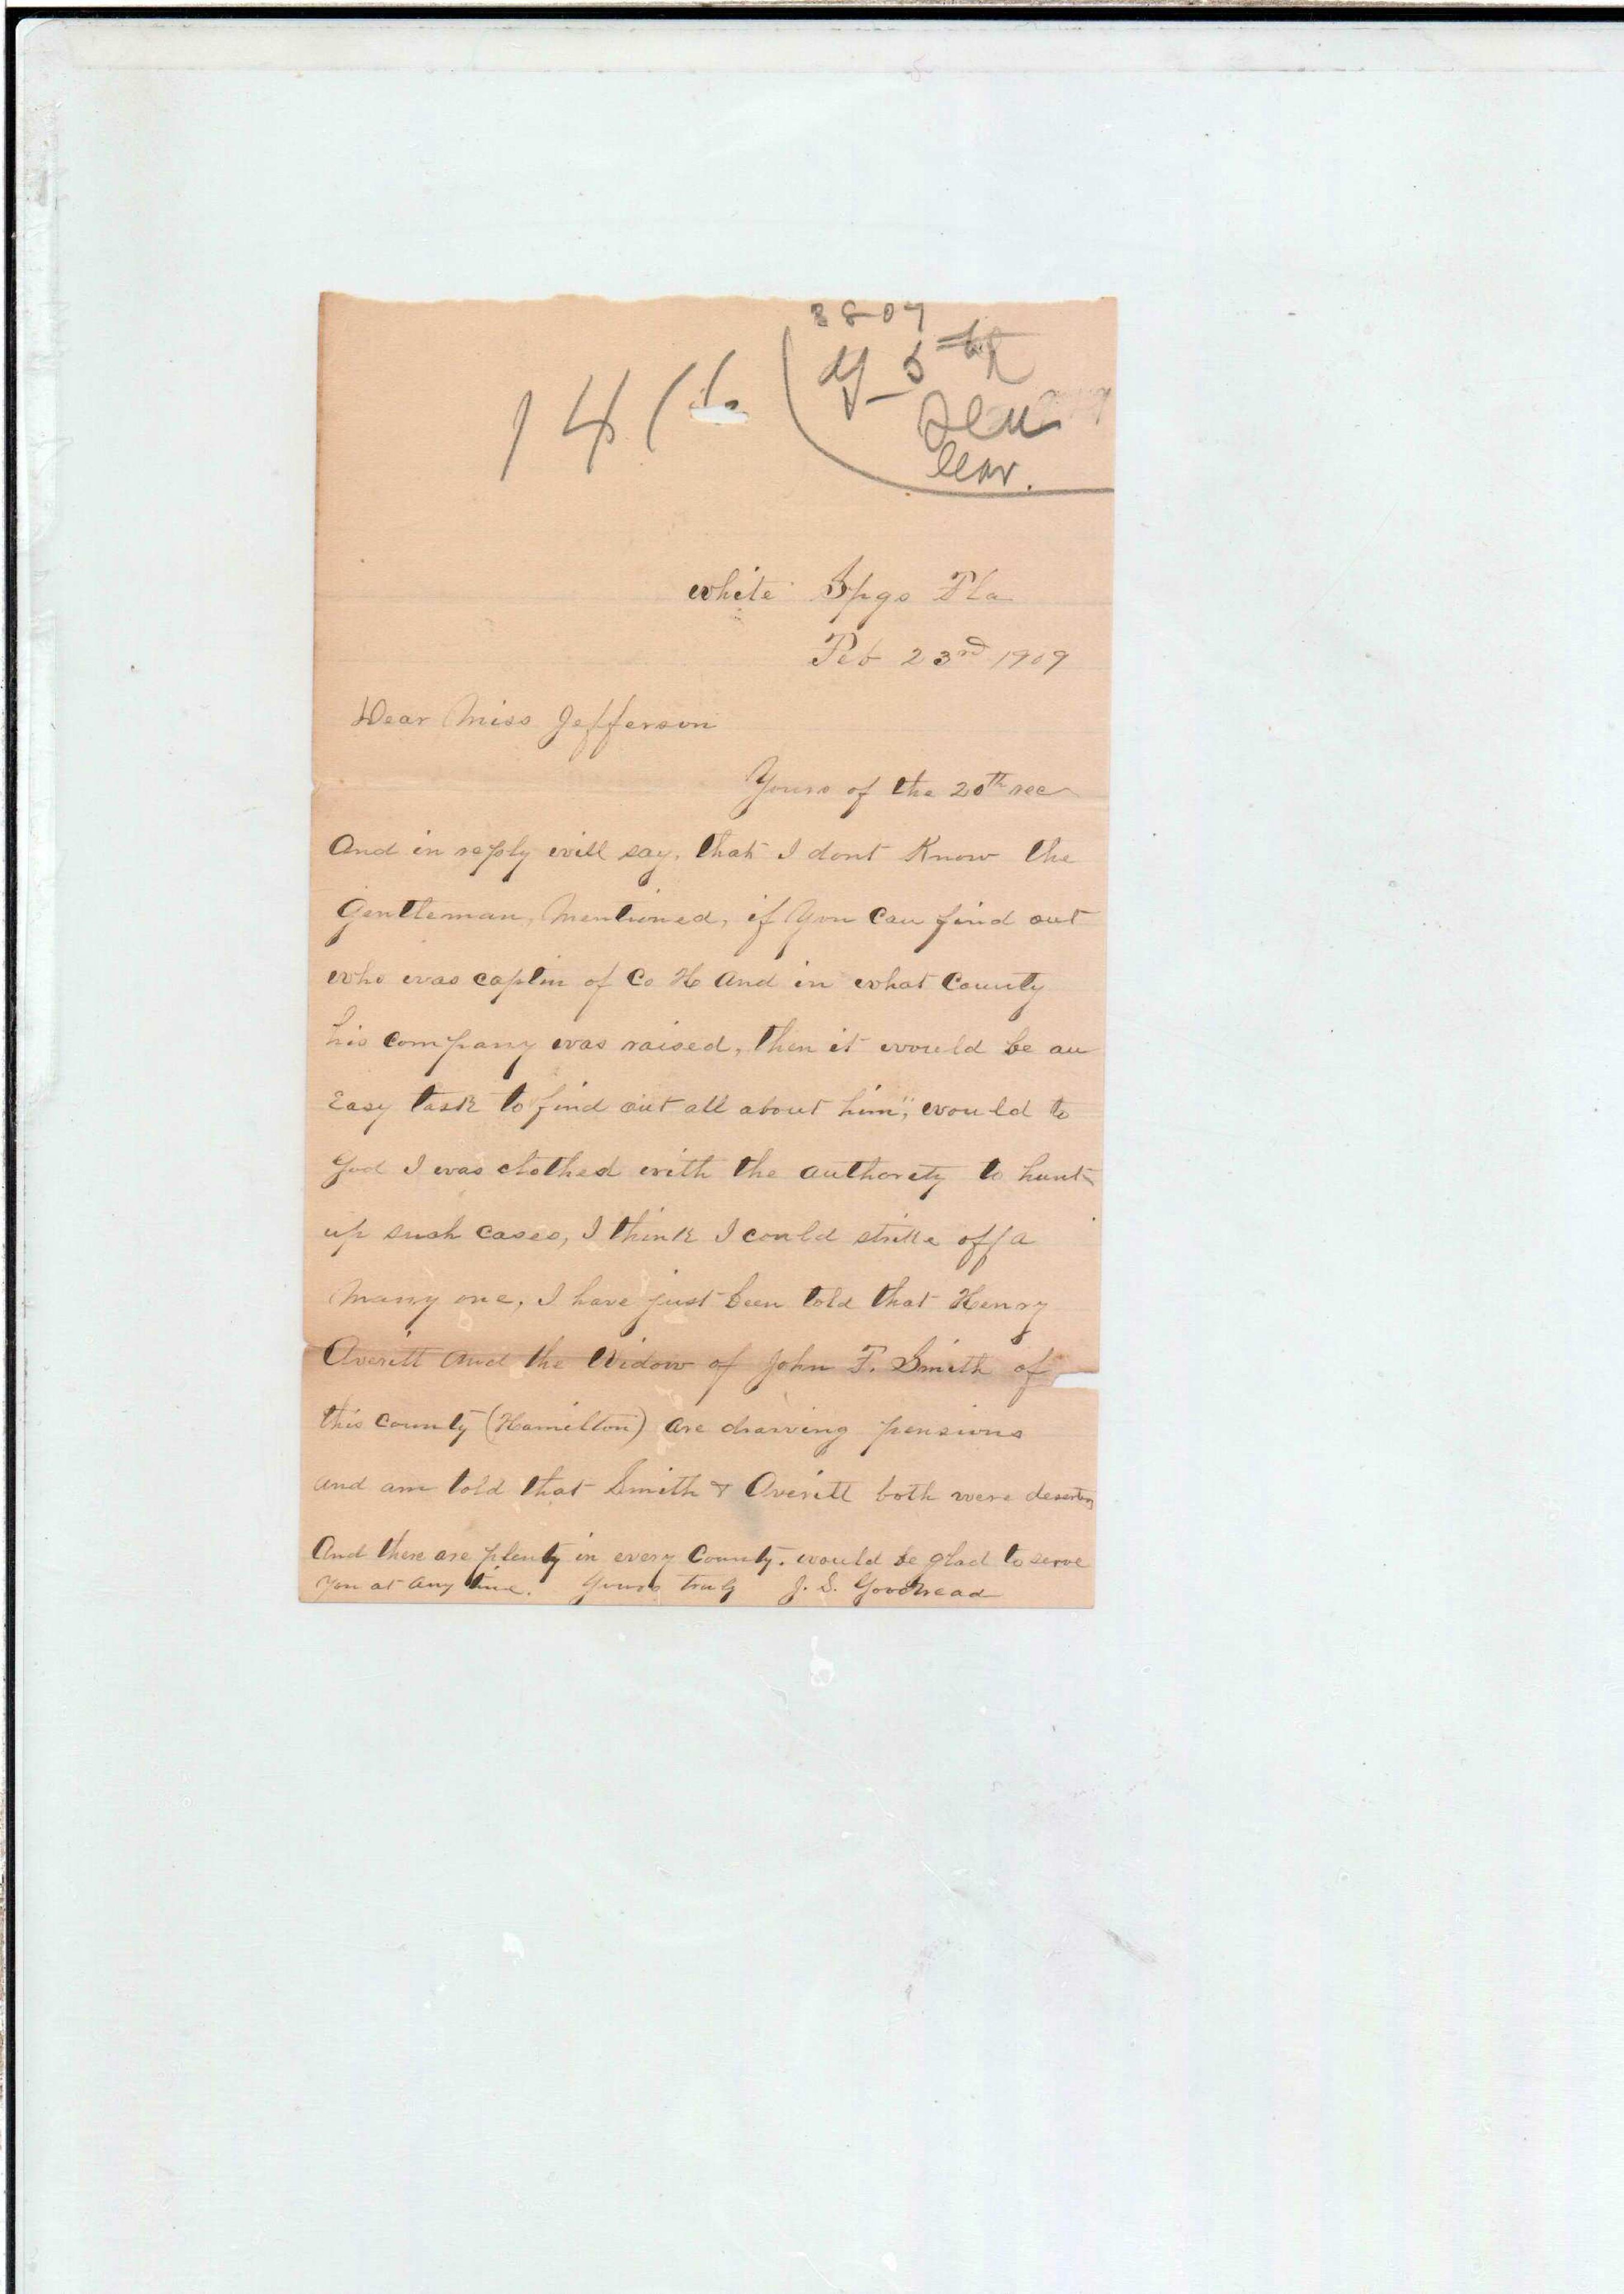 3807
141
5th
white Spgs Fla
Feb 23rd 1909
Dear Miss Jefferson
Yours of the 20th rec
And in reply will say, that I dont Know the
Gentleman, Mentioned, if You Can find out
who was captin of Co H And in what County
his Company was raised, then it would be an
Easy task to find out all about him", would to
God I was clothed with the authority to hunt
up such Cases, I think I could strike off a
Many one, I have just been told that Henry
Averitt And the Widow of John F. Smith of
this County (Hamilton) Are drawing pensions
and am told that Smith & Averitt both were deserters
And there are plenty in every County. would be glad to serve
You at Any time. Yours truly J. S. Goodbread